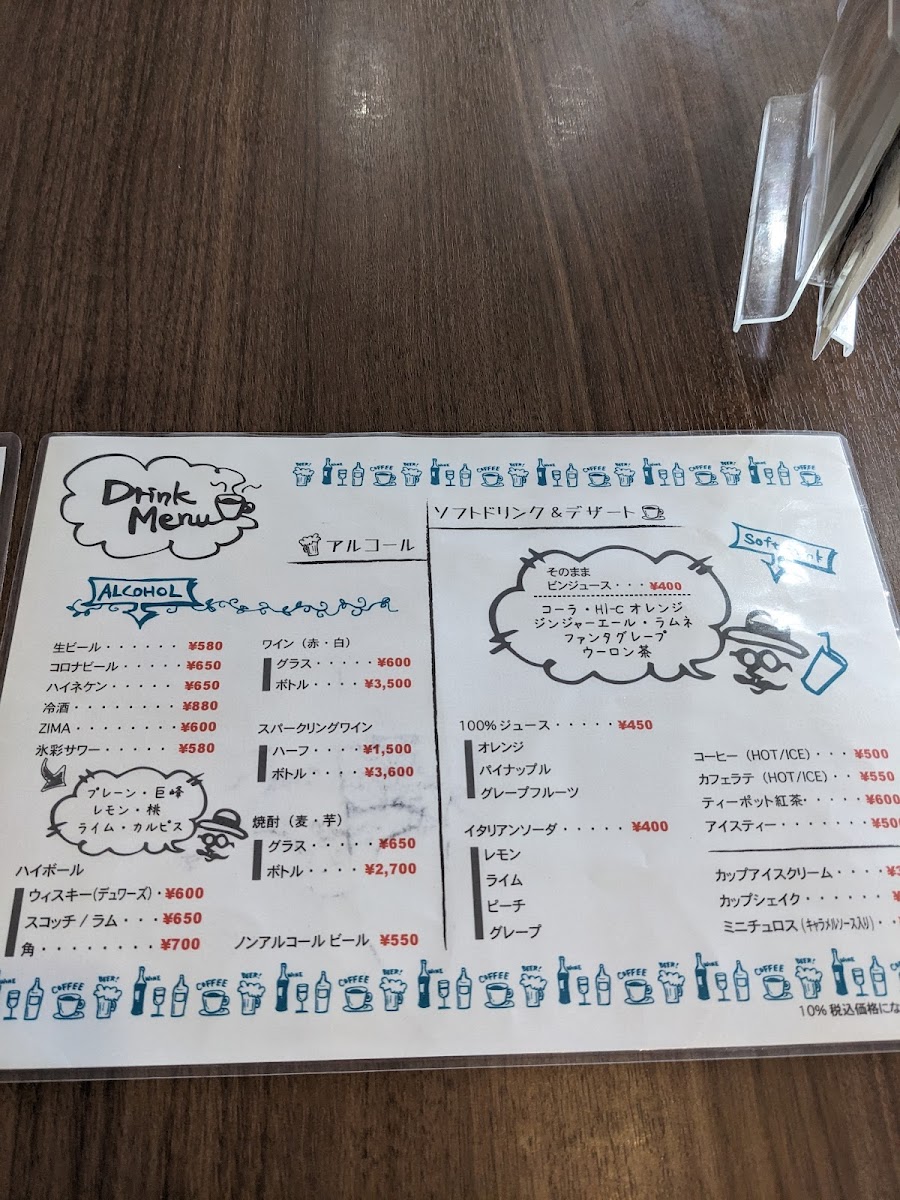 Drink
Menu
アルコール
ALCOHOL
生ビール・・・・・・¥580
コロナビール・・・・・¥650
ハイネケン・・・・・・¥650
冷酒・・・・・・・・¥880
ZIMA・・・・・・・・¥600
氷彩サワー・・・・・¥580
プレーン・巨峰
レモン・桃
ライム・カルピス
ハイボール
ウィスキー(デュワーズ)・¥600
スコッチ / ラム・・・¥650
角・・・・・・・・¥700
ワイン（赤・白）
グラス・・・・・¥600
ボトル・・・・¥3,500
スパークリングワイン
ハーフ・・・・¥1,500
ボトル・・・・¥3,600
焼酎（麦・芋）
グラス・・・・・¥650
ボトル・・・・¥2,700
ノンアルコールビール ¥550
ソフトドリンク＆デザート
Soft
そのまま
ビンジュース・・・¥400
コーラ・Hi-C オレンジ
ジンジャーエール・ラムネ
ファンタグレープ
ウーロン茶
100%ジュース・・・・・¥450
オレンジ
パイナップル
グレープフルーツ
イタリアンソーダ・・・・・・¥400
レモン
ライム
ピーチ
グレープ
コーヒー（HOT/ICE）・・・¥500
カフェラテ（HOT/ICE）・・¥550
ティーポット紅茶・・・・・¥600
アイスティー・・・・・・・
カップアイスクリーム・・・・
カップシェイク・・・・・
ミニチュロス(キャラメルソース入り)・・
10% 税込価格にな